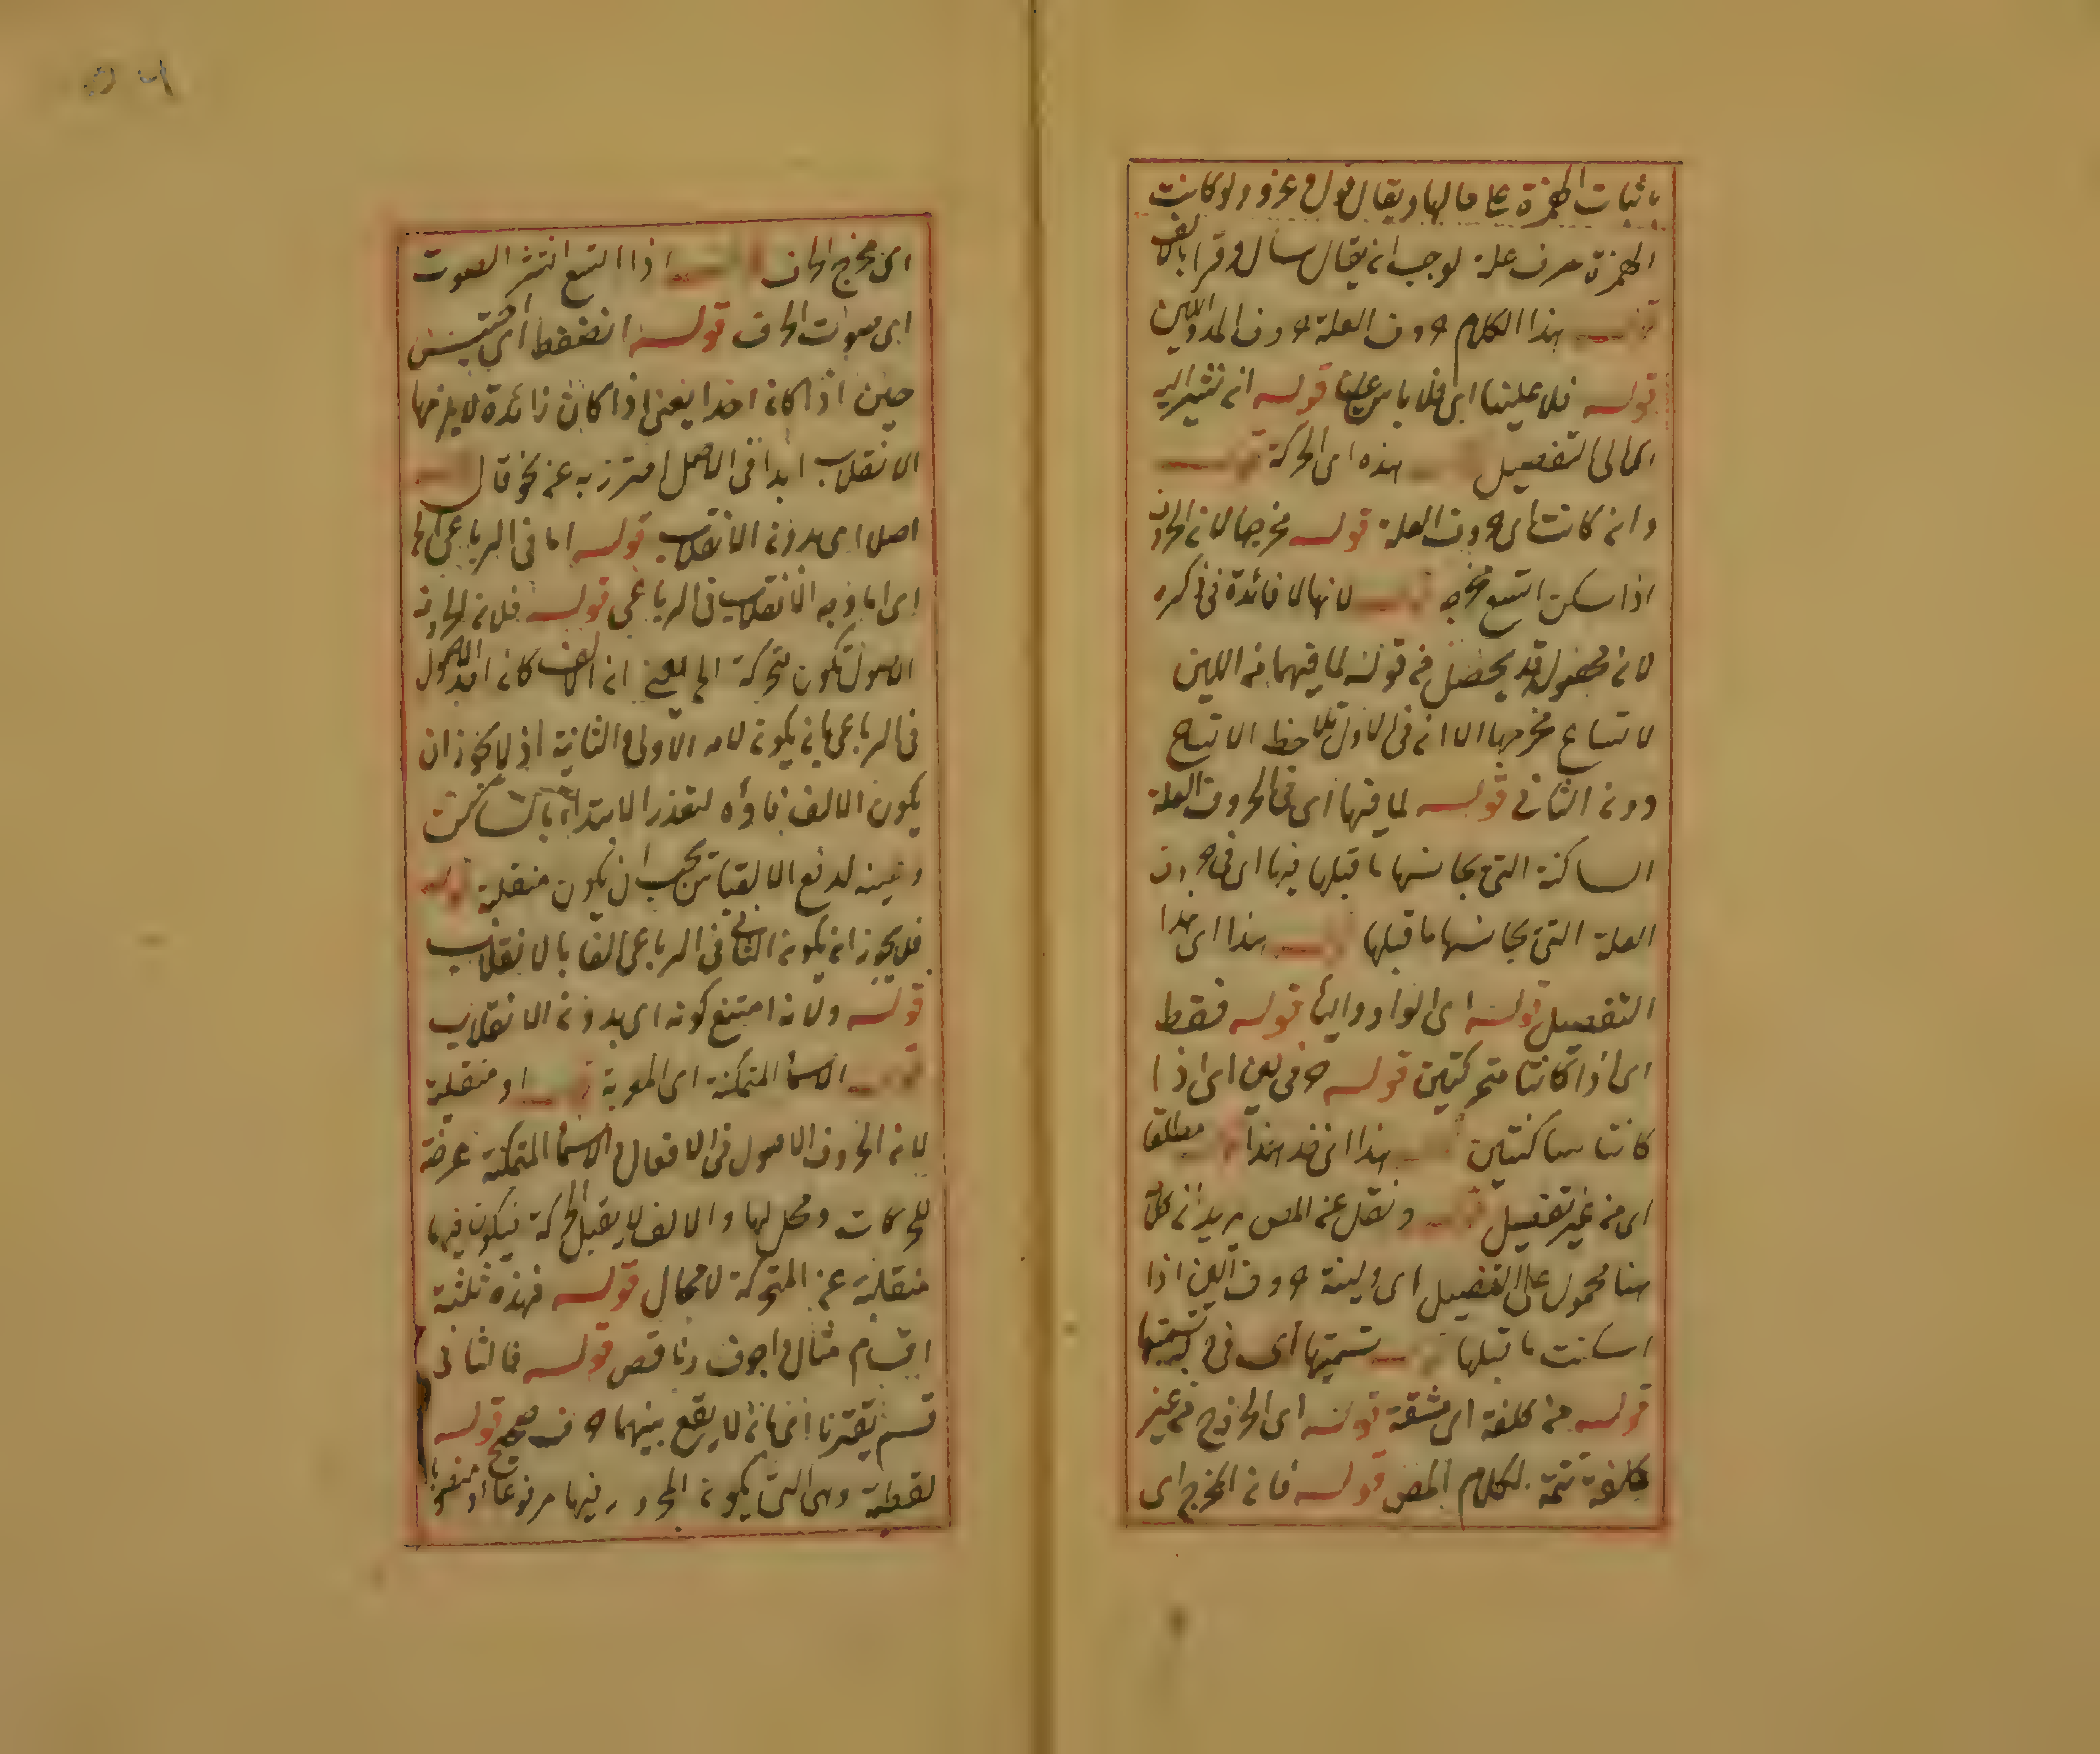 باثبات الهمزة على حالها ويقال قول وغزو ولو كانت
الهمزة حرف علة لوجب ان يقال سال وقرا بالالف
قوله هذا الكلام حروف العلة حروف المد واللين
قوله فلا علينا اى فلا باس علينا قوله ان نشير اليه
اى الى التفصيل هذه اى الحركة قوله
وان كانت اى حروف العلة قوله مخرجها لان الحروف
اذا سكن اتسع مخرجه قوله لانها لا فائدة فى ذكره
لان محصول قد يحصل من قوله لما فيهما من اللين
لاتساع مخرجها الا ان فى الاول تلاحظ الاتساع
دون الثانى قوله لما فيها اى فى الحروف العلة
الساكنة التى يجانسها ما قبلها فيها اى فى حروف
العلة التى يجانسها ما قبلها قوله هذا اى هذا
التفصيل قوله اى الواو والياء قوله فقط
اى اذا كانتا متحركتين قوله حرفى لين اى اذا
كانتا ساكنتين هذا اى خذ هذا مطلقا
اى من غير تفصيل قوله ونقل عن المص يريد ان كل
هنا محمول على التفصيل اى ولينة حروف اللين اذا
اسكنت ما قبلها قوله تسميتها اى فى تسميتها
قوله من كلفة اى مشقة قوله اى الخروج من غير
كلفة تتمة لكلام المص قوله فان المخرج اى
اى مخرج الحرف قوله اذا اتسع انتشر الصوت
اى صوت الحرف قوله انضغط اى احتبس
حين اذا كان احدا يعنى اذا كانت زائدة لا يلزمها
الانقلاب ابدا فى الاصل احترز به عن نحو قال قوله
اصلا اى بدون الانقلاب قوله اما فى الرباعى الخ
اى اما وجه الانقلاب فى الرباعى قوله فلان الحروف
الاصول تكون متحركة الخ يعنى ان الالف كان احد الاصول
فى الرباعى بان يكون لامه الاولى او الثانية اذ لا يجوز ان
يكون الالف فاؤه لتعذر الابتداء بالساكن
وعينه لدفع الالتباس يجب ان يكون منقلبة قوله
فلا يجوز ان يكون الثانى فى الرباعى الفا بالانقلاب
قوله ولانه امتنع كونه اى بدون الانقلاب
قوله الاسماء المتمكنة اى المعربة قوله او منقلبة
لان الحروف الاصول فى الافعال والاسماء المتمكنة عرضة
للحركات ومحل لها والالف لا يقبل الحركة فيكون فيها
منقلبة عن المتحركة لا محال قوله فهذه ثلثة
اقسام مثال واجوف وناقص قوله فالثانى
قسم يقترنا اى بان لا يقع بينهما حرف صحيح قوله
لفظية وهى التى يكون المجرور فيها مرفوعا او منصوبا